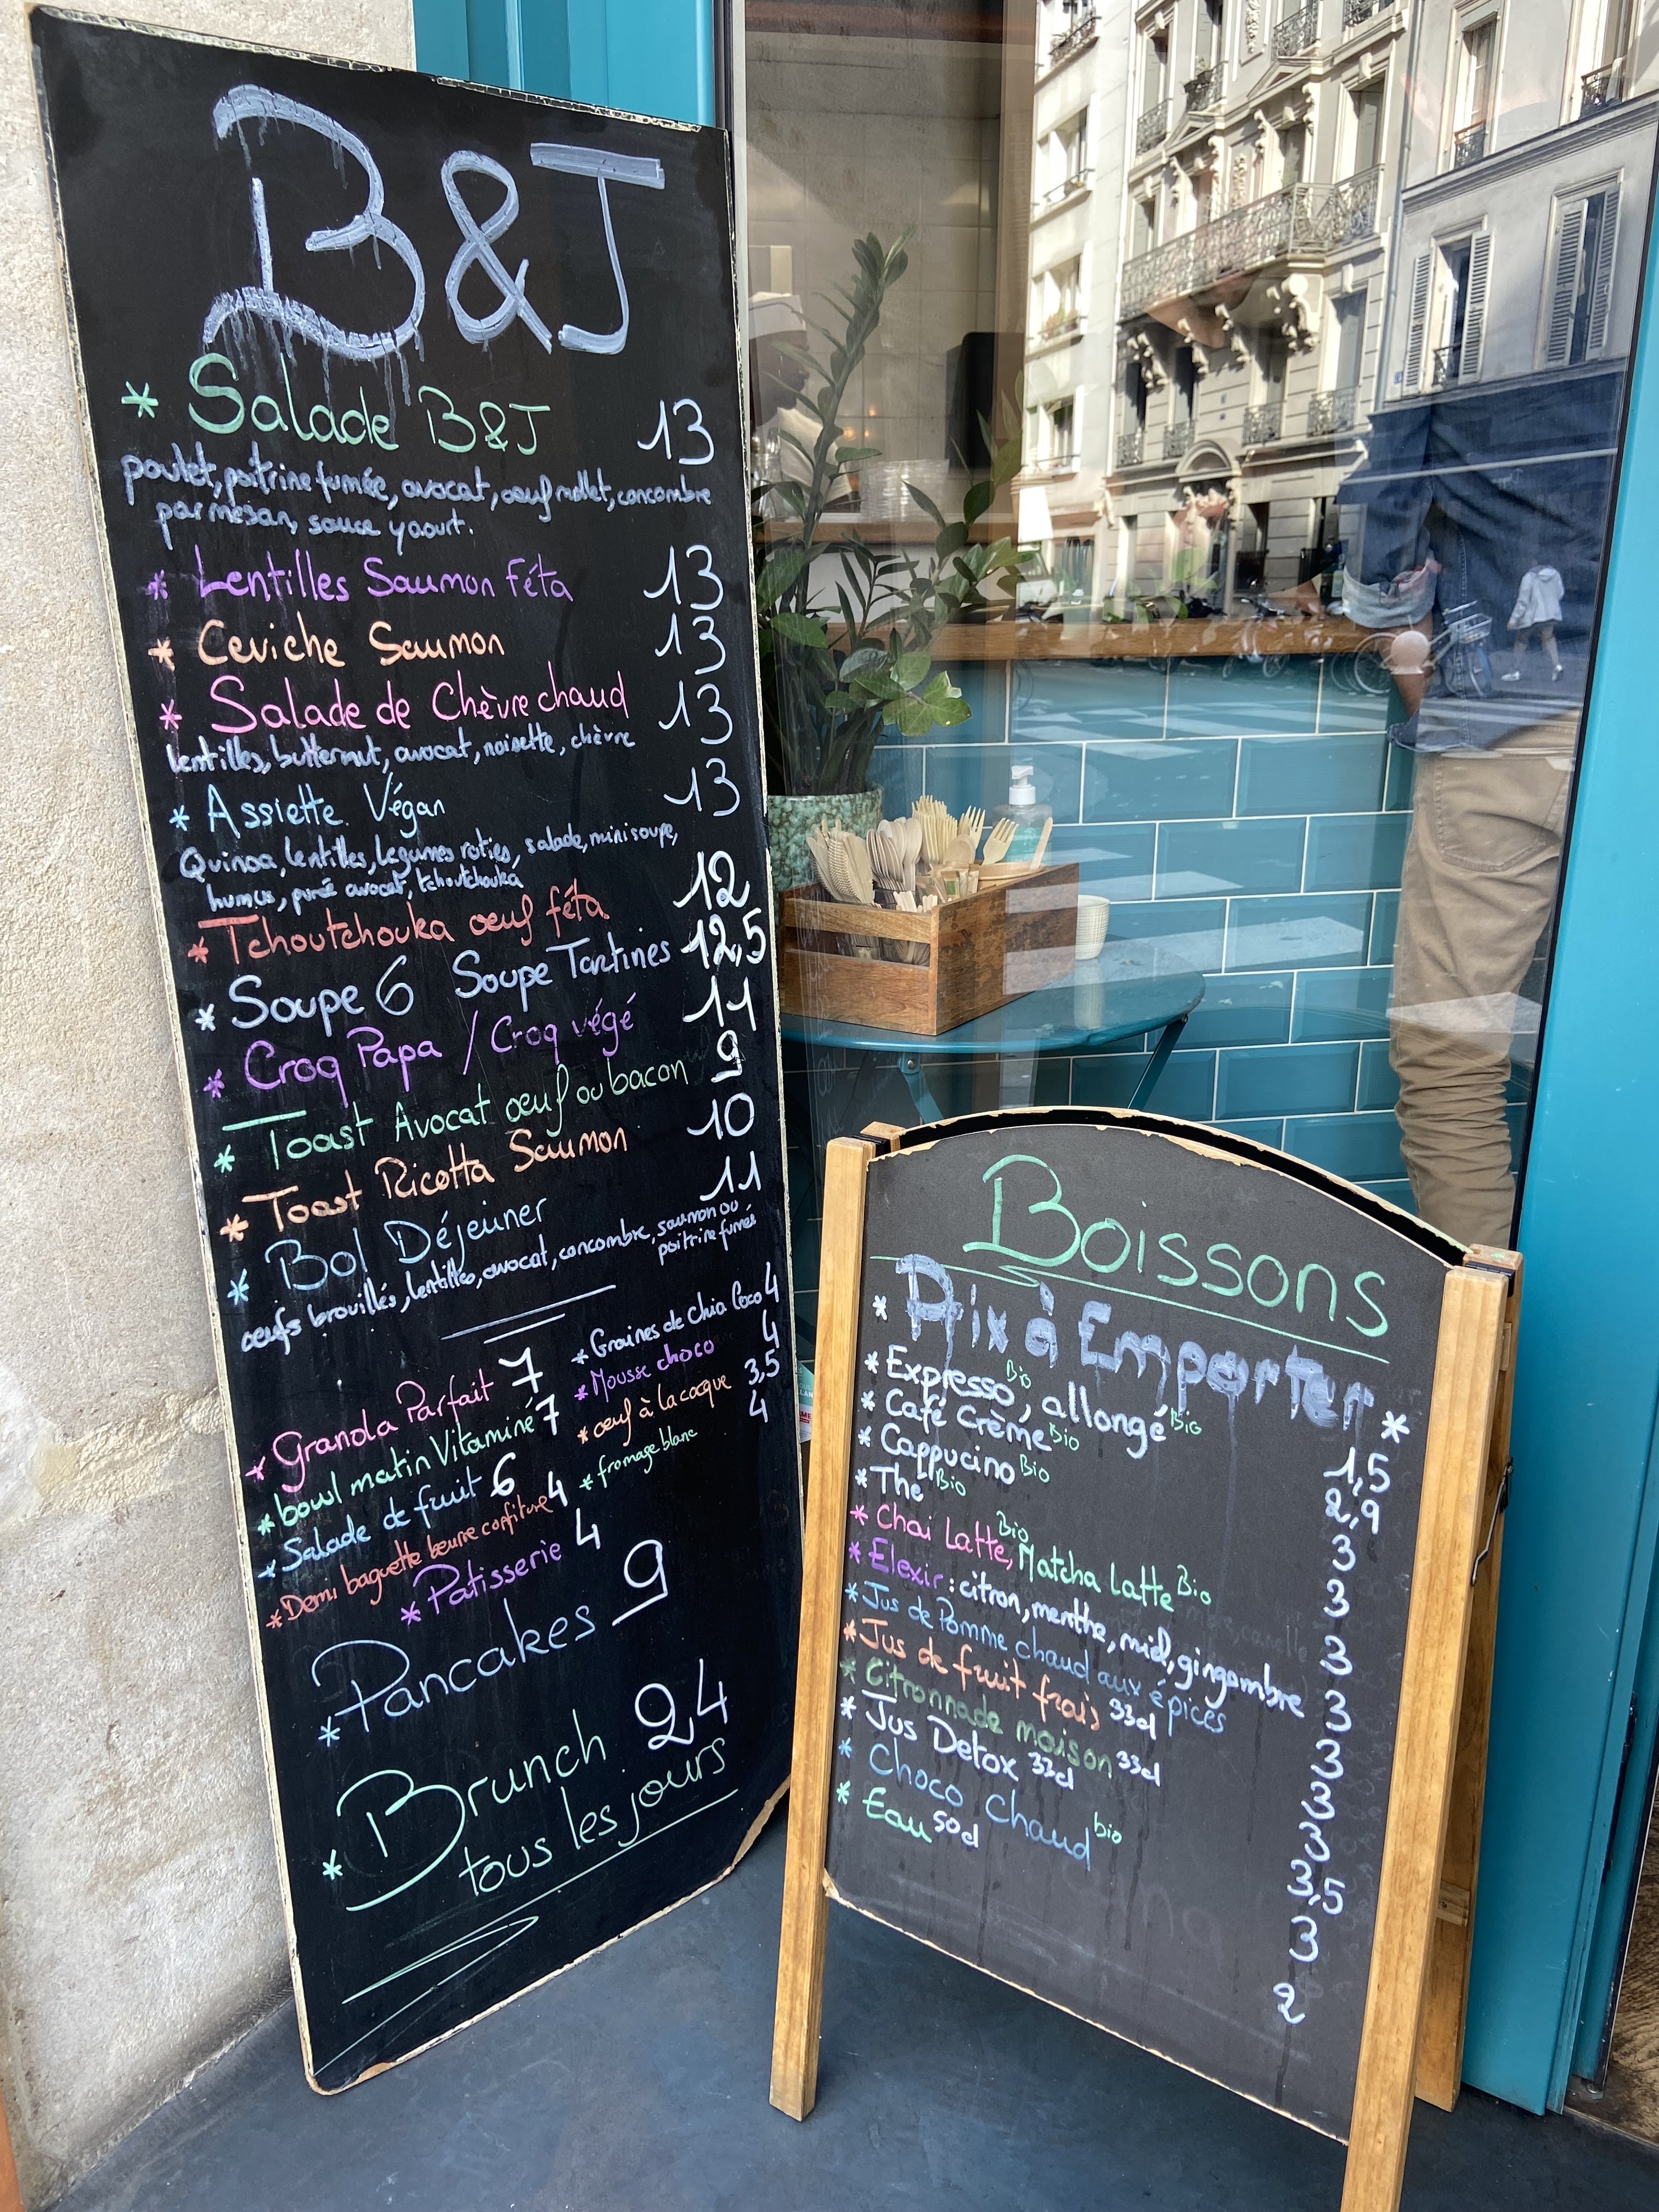 B&J
* Salade B&J 13
poulet, poitrine fumée, avocat, oeuf mollet, concombre
parmesan, sauce yaourt.
* Lentilles Saumon Féta 13
* Ceviche Saumon 13
* Salade de Chèvre chaud 13
lentilles, butternut, avocat, noisette, chèvre
* Assiette Végan 13
Quinoa, lentilles, légumes roties, salade, mini soupe,
humus, purée avocat, tchoutchouka
* Tchoutchouka oeuf féta 12
* Soupe 6 Soupe Tartines 12,5
* Croq Papa / Croq végé 11
* Toast Avocat oeuf ou bacon 9
* Toast Ricotta Saumon 10
* Bol Déjeuner 11
oeufs brouillés, lentilles, avocat, concombre, saumon ou
poitrine fumée
* Granola Parfait 7
* bowl matin Vitaminé 7
* Salade de fruit 6
* Demi baguette beurre confiture 4
* Patisserie 4
* Graines de Chia Coco 4
* Mousse choco 4
* oeuf à la cocque 3,5
* fromage blanc 4
* Pancakes 9
* Brunch 24
tous les jours
Boissons
* Prix à Emporter *
* Expresso Bio, allongé Bio 1,5
* Café Crème Bio 2,9
* Cappucino Bio 3
* Thé Bio 3
* Chai Latte Bio, Matcha Latte Bio 3
* Elexir : citron, menthe, miel, gingembre 3
* Jus de Pomme chaud aux épices 3
* Jus de fruit frais 33cl 3
* Citronnade maison 33cl 3
* Jus Detox 33cl 3,5
* Choco Chaud bio 3
* Eau 50cl 2